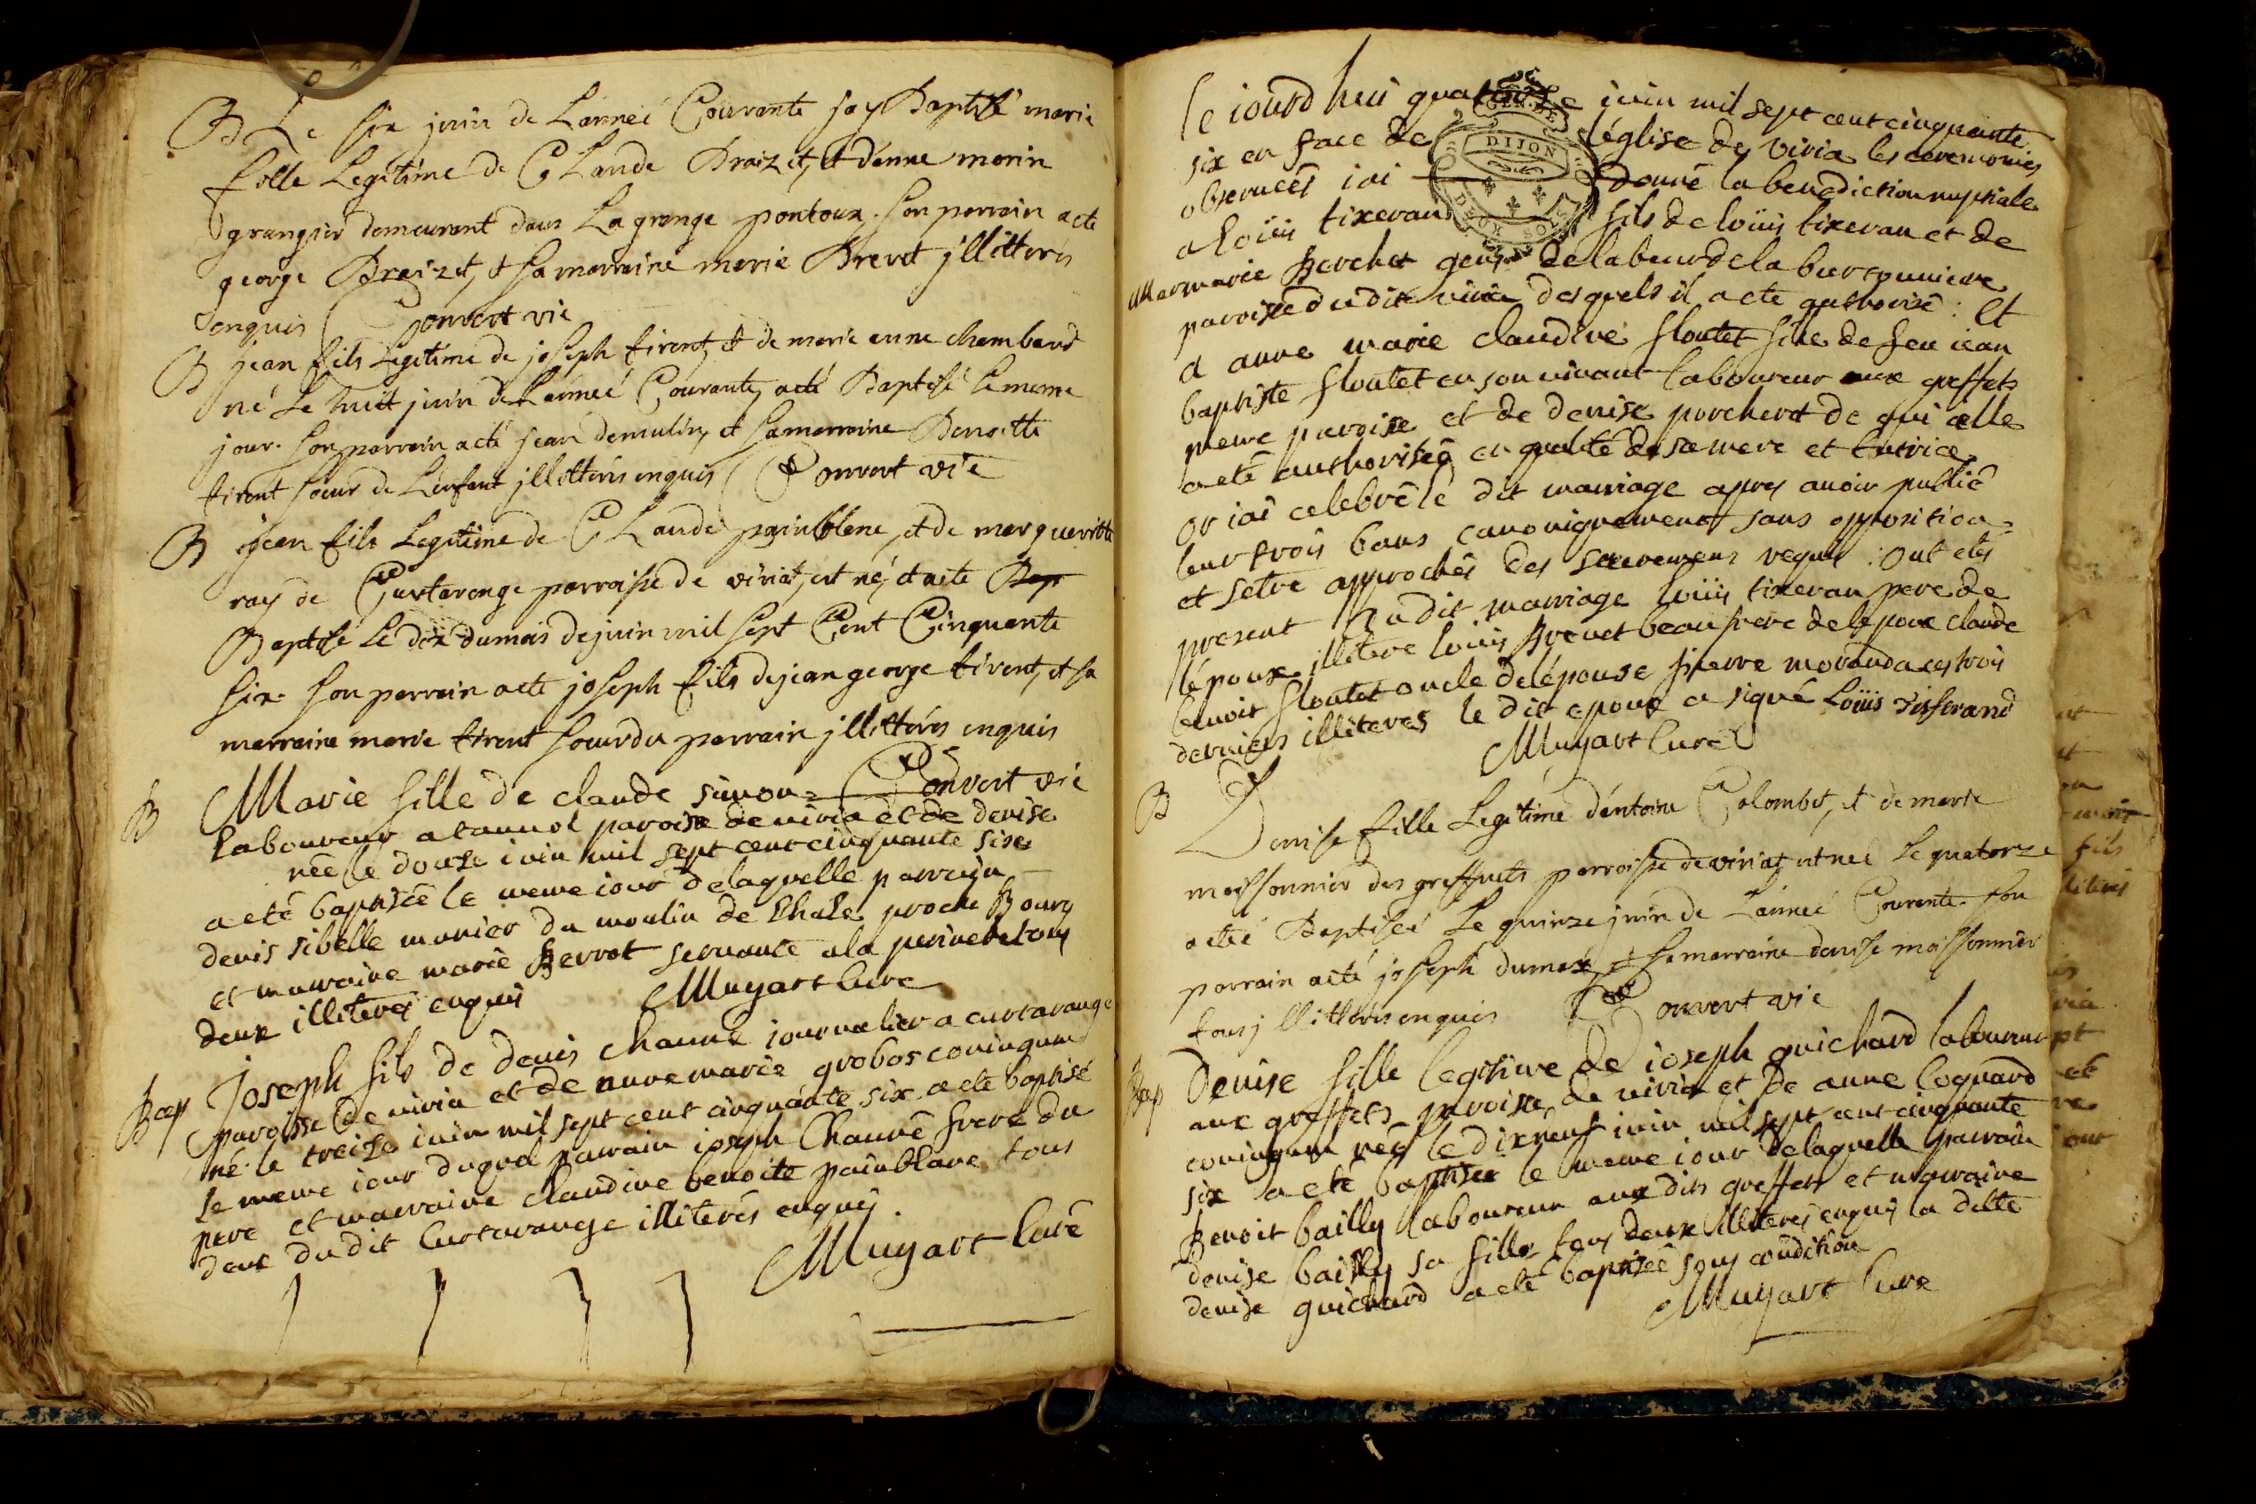 B Le six juin de Lanneé Courante jay Baptisé marie
fille Legitime de Claude Braizet, et d'enne morin
grangier demeurant dans La grange pontoux. son parrain a eté
george Braizet, et sa marraine marie Brevet jllitterés
enquis Convert vic
B jean fils Legitime de joseph tirent, et de marie anne chambard
né Le huit juin de Lanneé Courante, a eté Baptisé Le meme
jour. son parrain a eté jean demulin, et sa marraine Benoitte
tirent soeur de L'enfant jllitterés enquis Convert vic
B jean fils Legitime de Claude painblanc, et de margueritte
ray de Curtarenge parroisse de viriat, est né, et a eté Bap
Baptisé Le dix du mois de juin mil sept Cent Cinquante
six. son parrain a eté joseph fils de jean george tirent, et sa
marraine marie tirent soeur du parrain jllitterés enquis
Convert vic
B Marie fille de claude simon
laboureur a tannol paroise de viria et de denise
née le douse iuin mil sept cent cinquante sise
a eté baptisée le meme iour de laquelle parrain
denis sibelle munier du moulin de Chale proche Bourg
et marraine marie Perrot servante a la
deux illiterés enquis Muyart Curé
Bap Joseph fils de denis Chauné iournalier a curtarange
paroisse de viria et de anne marie grobos coniugum
né le treise iuin mil sept cent cinquante six a eté baptisé
le meme iour duquel parrain ioseph Chauné frere du
pere et marraine claudine benoite painblanc tous
deux dudit Curtarange illiterés enquis.
Muyart Curé
le iourd hui quatorse iuin mil sept cent cinquante
six en face de léglise de viria les ceremonies
observeés iai donné la benediction nuptiale
a loüis tixeran fils de loüis tixeran et de
Mar marie Berchet gens de labeur de la
paroisse du dit viria desquels il a eté authorisé : et
a anne marie claudine floutet fille de feu iean
baptiste floutet en son vivant laboureur aux greffets
meme paroise et de denise porcherot de qui elle
a eté authorisée en qualité de sa mere et tutrice
or iai celebré le dit mariage apres avoir publié
leur trois bans canoniquement sans opposition
et setre approchés des sacremens requis : ont etés
present au dit mariage loüis tixeran pere de
lépoux illitere loüis Brevet beau frere de lepoux claude
benoit floutet oncle de lépouse pierre morand a ces trois
derniers illiteres le dit epoux a signé Loüis Tisserand
Muyart Curé
DIJON
B Denise fille Legitime d'entoine Colombet, et de marie
moissonnier des greffets parroisse de viriat, est neé Le quatorze
a eteé Baptiseé Le quinze juin de Lanneé Courante. son
parrain a eté joseph dumax, et sa marraine denise moissonnier
tous jllitterés enquis Convert vic
Bap Denise fille legitime de ioseph guichard laboureur
aux greffets paroisse de viria et de anne loquard
coniugum née le dixneuf iuin mil sept cent cinquante
six a eté baptisée le meme iour de laquelle parrain
Benoit bailly laboureur aux dits greffets et marraine
denise bailly sa fille tous deux illiterés enquis la ditte
denise guichard a eté baptisée sous condition
Muyart Curé